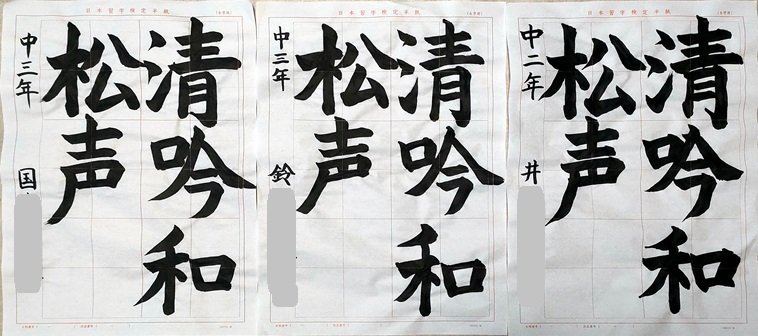 日本習字検定半紙
清吟和
松声
中三年
国
日本習字検定半紙
清吟和
松声
中三年
鈴
日本習字検定半紙
清吟和
松声
中二年
井